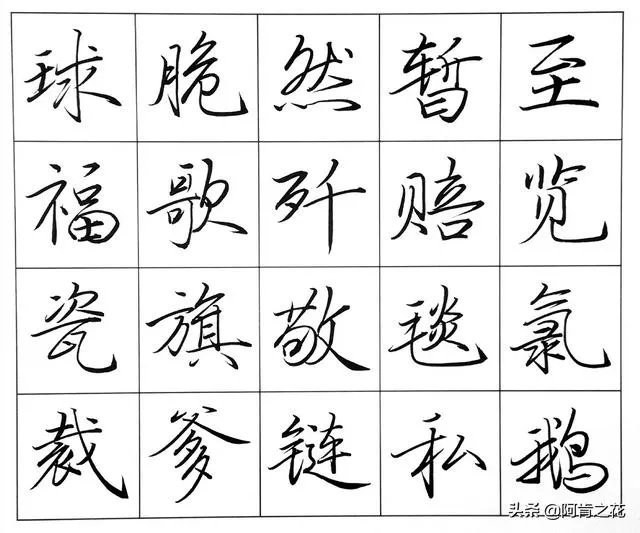 球脆然暂至
福歌歼赔览
瓷旗敬毯氯
裁爹链私鹅
头条 @阿肯之花